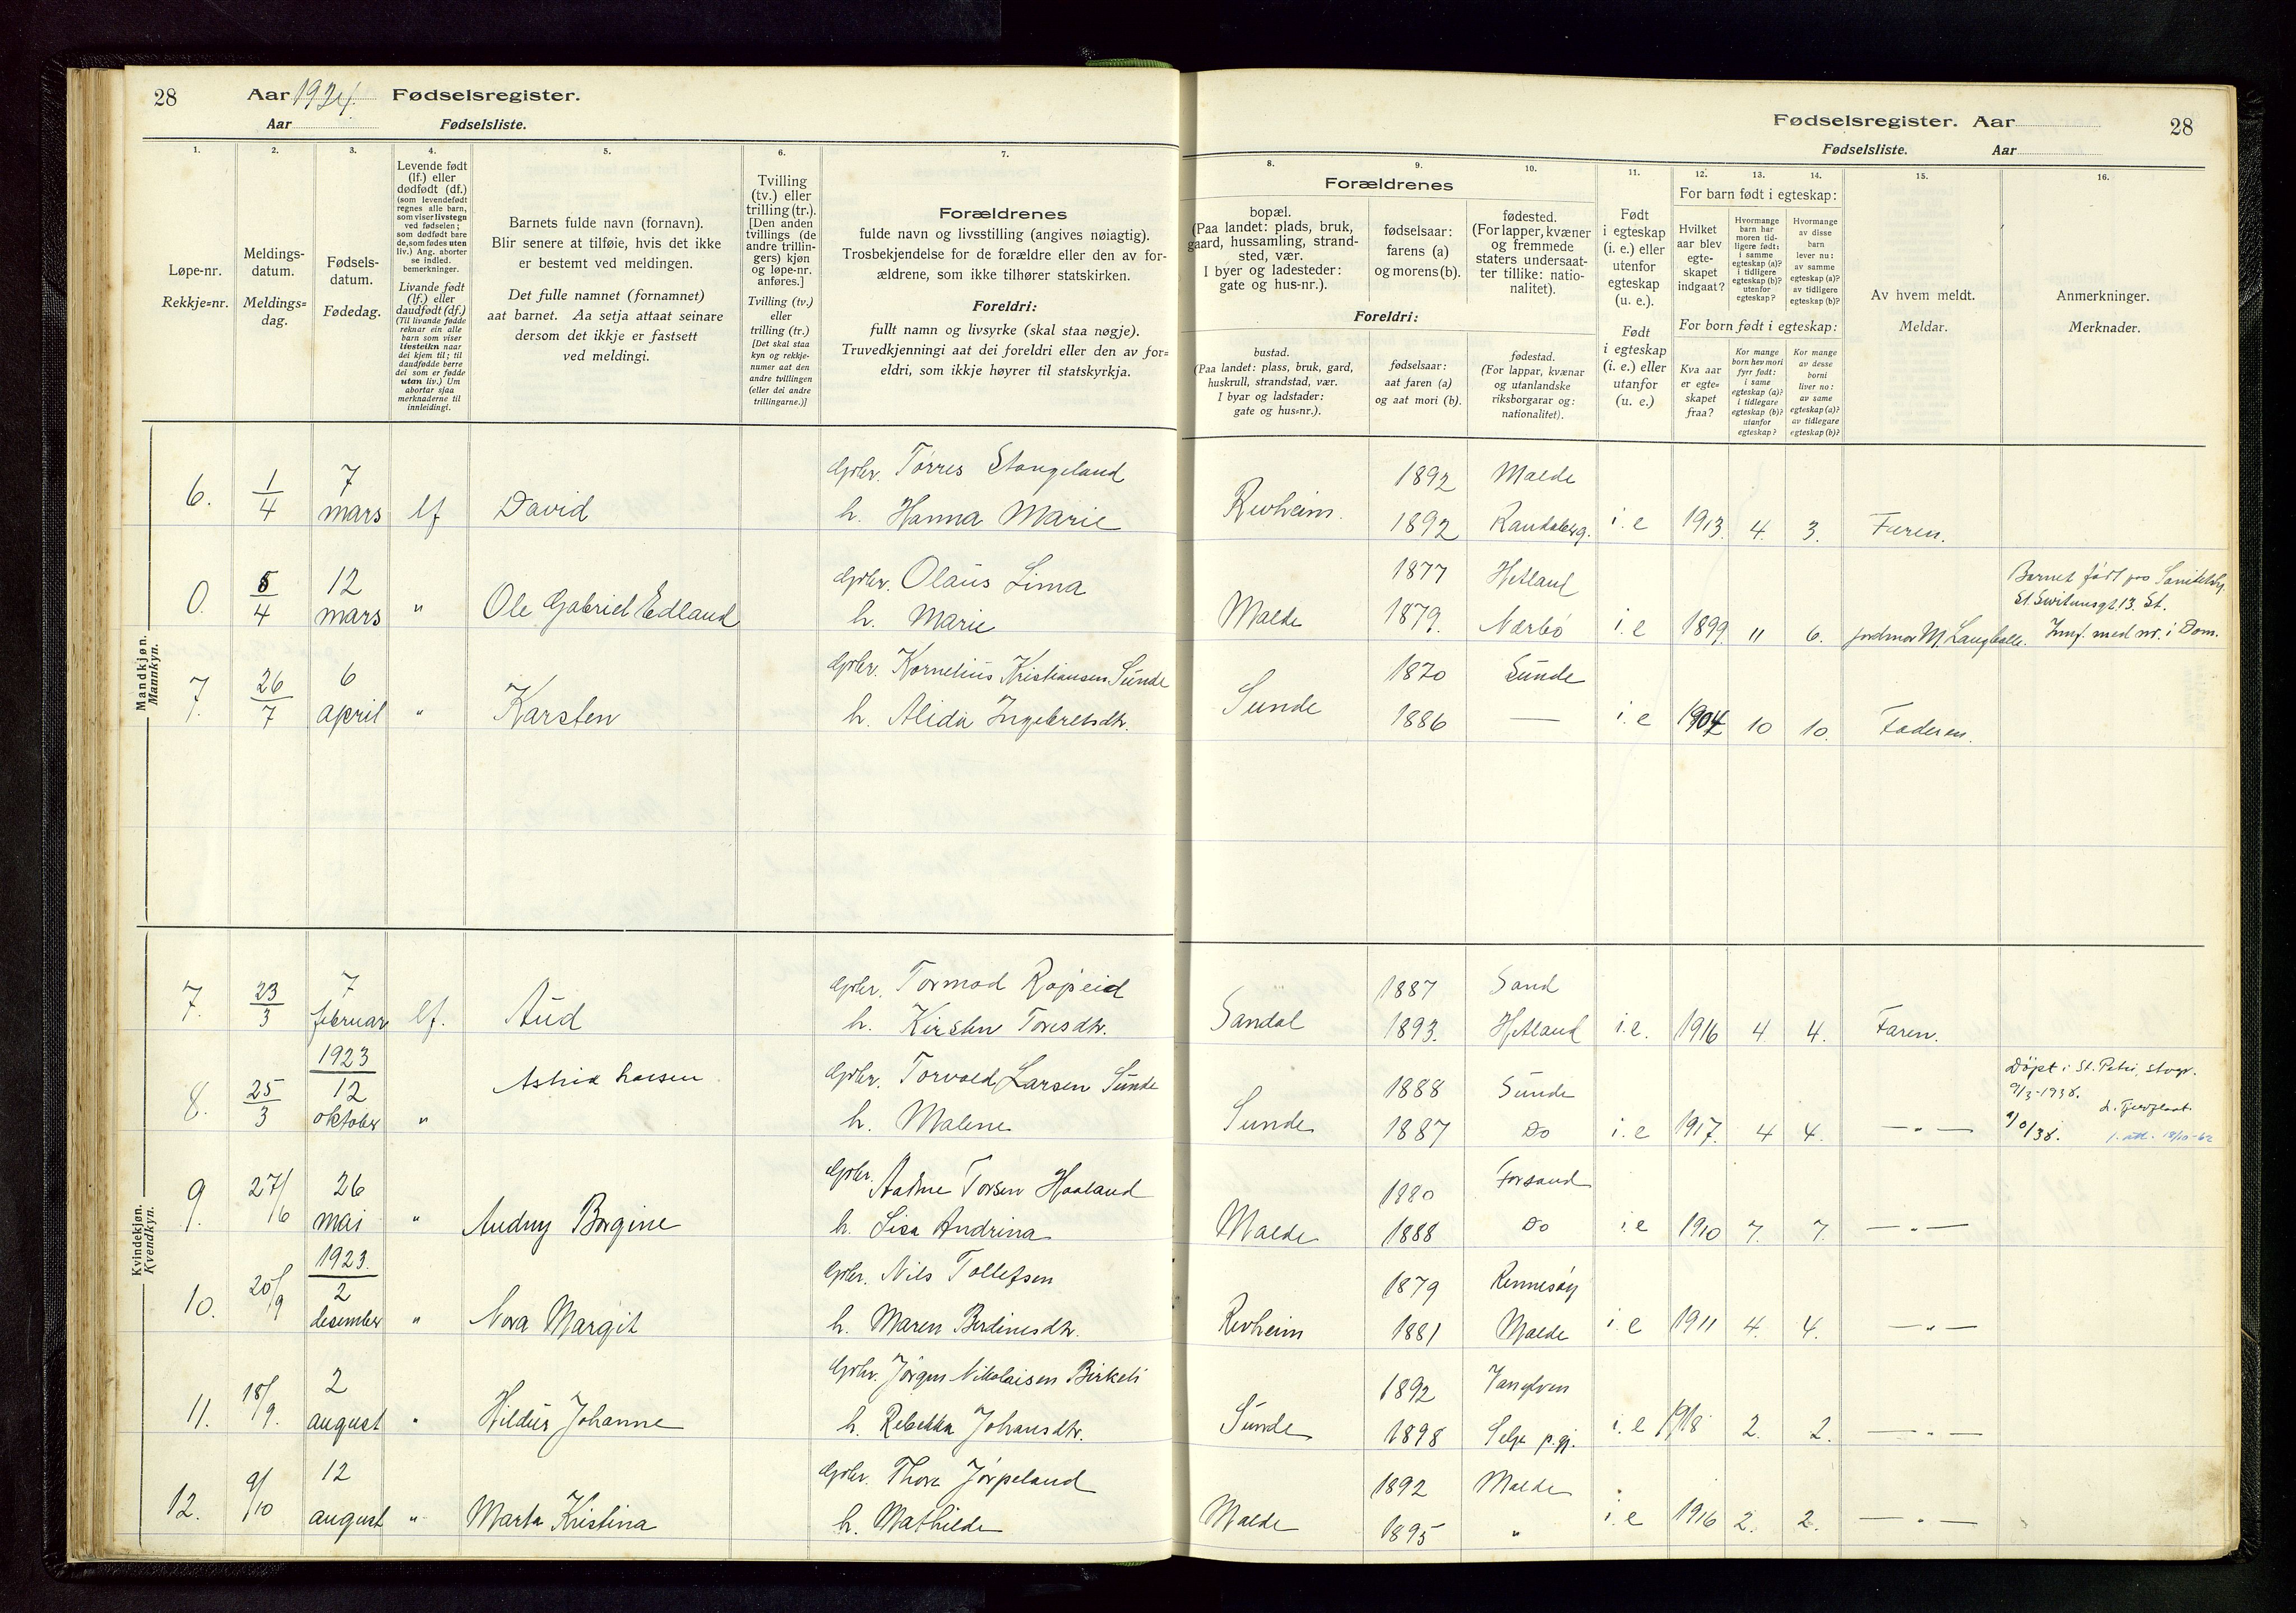 28 Aar 1924. Fødselsregister.
Aar Fødselsliste.
Fødselsregister. Aar 28
Fødselsliste. Aar
1. 2. 3. 4. 5. 6. 7. 8. 9. 10. 11. 12. 13. 14. 15. 16.
Løpe-nr.
Rekkje=nr.
Meldings-
datum.
Meldings=
dag.
Fødsels-
datum.
Fødedag.
Levende født
(lf.) eller
dødfødt (df.)
(som levendefødt
regnes alle barn,
som viser livstegn
ved fødselen;
som dødfødt bare
de, som fødes uten
liv.) Ang. aborter
se indled.
bemerkninger.
Livande født
(lf.) eller
daudfødt (df.)
(Til livande fødde
reknar ein alle
barn som viser
livsteikn naar
dei kjem til; til
daudfødde berre
dei som er fødde
utan liv.) Um
abortar sjaa
merknaderne til
innleidingi.
Barnets fulde navn (fornavn).
Blir senere at tilføie, hvis det ikke
er bestemt ved meldingen.
Det fulle namnet (fornamnet)
aat barnet. Aa setja attaat seinare
dersom det ikkje er fastsett
ved meldingi.
Tvilling
(tv.) eller
trilling (tr.).
[Den anden
tvillings (de
andre trillin-
gers) kjøn
og løpe-nr.
anføres.]
Tvilling (tv.)
eller
trilling (tr.)
[Det skal staa
kyn og rekkje-
numer aat den
andre tvillingen
(eller dei andre
trillingarne.)]
Forældrenes
fulde navn og livsstilling (angives nøiagtig).
Trosbekjendelse for de forældre eller den av for-
ældrene, som ikke tilhører statskirken.
Foreldri:
fullt namn og livsyrke (skal staa nøgje).
Truvedkjenningi aat dei foreldri eller den av for=
eldri, som ikkje høyrer til statskyrkja.
Forældrenes
bopæl.
(Paa landet: plads, bruk,
gaard, hussamling, strand-
sted, vær.
I byer og ladesteder:
gate og hus-nr.).
fødselsaar:
farens (a)
og morens (b).
fødested.
(For lapper, kvæner
og fremmede
staters undersaat-
ter tillike: natio-
nalitet).
Foreldri:
bustad.
(Paa landet: plass, bruk, gard,
huskrull, strandstad, vær.
I byar og ladstader:
gate og hus=nr.).
fødselsaar:
aat faren (a)
og aat mori (b).
fødestad.
(For lappar, kvænar
og utanlandske
riksborgarar og:
nationalitet).
Født
i egteskap
(i. e.) eller
utenfor
egteskap
(u. e.).
Født
i egteskap
(i. e.) eller
utanfor
(u. e.)
For barn født i egteskap:
Hvilket
aar blev
egte-
skapet
indgaat?
Hvormange
barn har
moren tid-
ligere født:
i samme
egteskap (a)?
i tidligere
egteskap (b)?
utenfor
egteskap?
Hvormange
av disse
barn
lever nu:
av samme
egteskap (a)?
av tidligere
egteskap (b)?
For born født i egteskap:
Kva aar
er egte=
skapet
fraa?
Kor mange
born hev mori
fyrr født:
i same
egteskap (a)?
i tidlegare
egteskap (b)?
utanfor
egteskap?
Kor mange
av desse
borni
liver no:
av same
egteskap (a)?
av tidlegare
egteskap (b)?
Av hvem meldt.
Meldar.
Anmerkninger.
Merknader.
Mandkjøn.
Mannkyn.
6. 1/4 7 mars lf David Gbr. Tørres Stangeland
h. Hanna Marie
Revheim. 1892 Malde
1892 Randaberg. i. e 1913. 4. 3. Faren.
0. 5/4 12 mars " Ole Gabriel Edland Gbr. Olaus Lima
h. Marie
Malde 1877 Hetland
1879. Nærbø i. e 1899 11 6. jordmor M.
Barnet født paa
St. Svitunsgt. 13. St.
Innf. med nr. i Dom.
7. 26/7 6 april " Karsten Gbr. Kornelius Kristiansen Sunde
h. Alida Ingebretsdtr.
Sunde 1870 Sunde
1886 — i. e 1904 10 10. Faderen.
Kvindekjøn.
Kvendkyn.
7. 23/3 7 februar lf. Aud Gbr. Tormod Røpeid
h. Kirsten Toresdtr.
Sandal 1887 Sand
1893. Hetland i. e. 1916 4 4. Faren.
8. 25/3 1923 12 oktober " Astrid Larsen Gbr. Torvald Larsen Sunde
h. Malene
Sunde 1888 Sunde
1887 Do i. e 1917. 4 4. — " —
Døpt i St. Petri, Stvgr.
9/3-1938.
9. 27/6 26 mai " Audny Borgine Gbr. Aadne Torsen Haaland
h. Lisa Andrina
Malde 1880 Forsand
1888 Do i. e 1910 7. 7. — " —
10. 20/9 1923. 2 desember " Nora Margit Gbr. Nils Tollefsen
h. Maren Berdinesdtr.
Revheim 1879 Rennesøy
1881 Malde i. e 1911 4. 4. — " —
11. 18/9. 2 august " Hildur Johanne Gbr. Jørgen Nikolaisen Birkeli
h. Rebekka Johansdtr.
Sunde 1892
1898 Selje p.gj. i. e 1918 2. 2. — " —
12. 9/10 12 august " Marta Kristina Gbr. Thore Jørpeland
h. Mathilde
Malde 1892 Malde
1895 " i. e 1916 2. 2. — " —